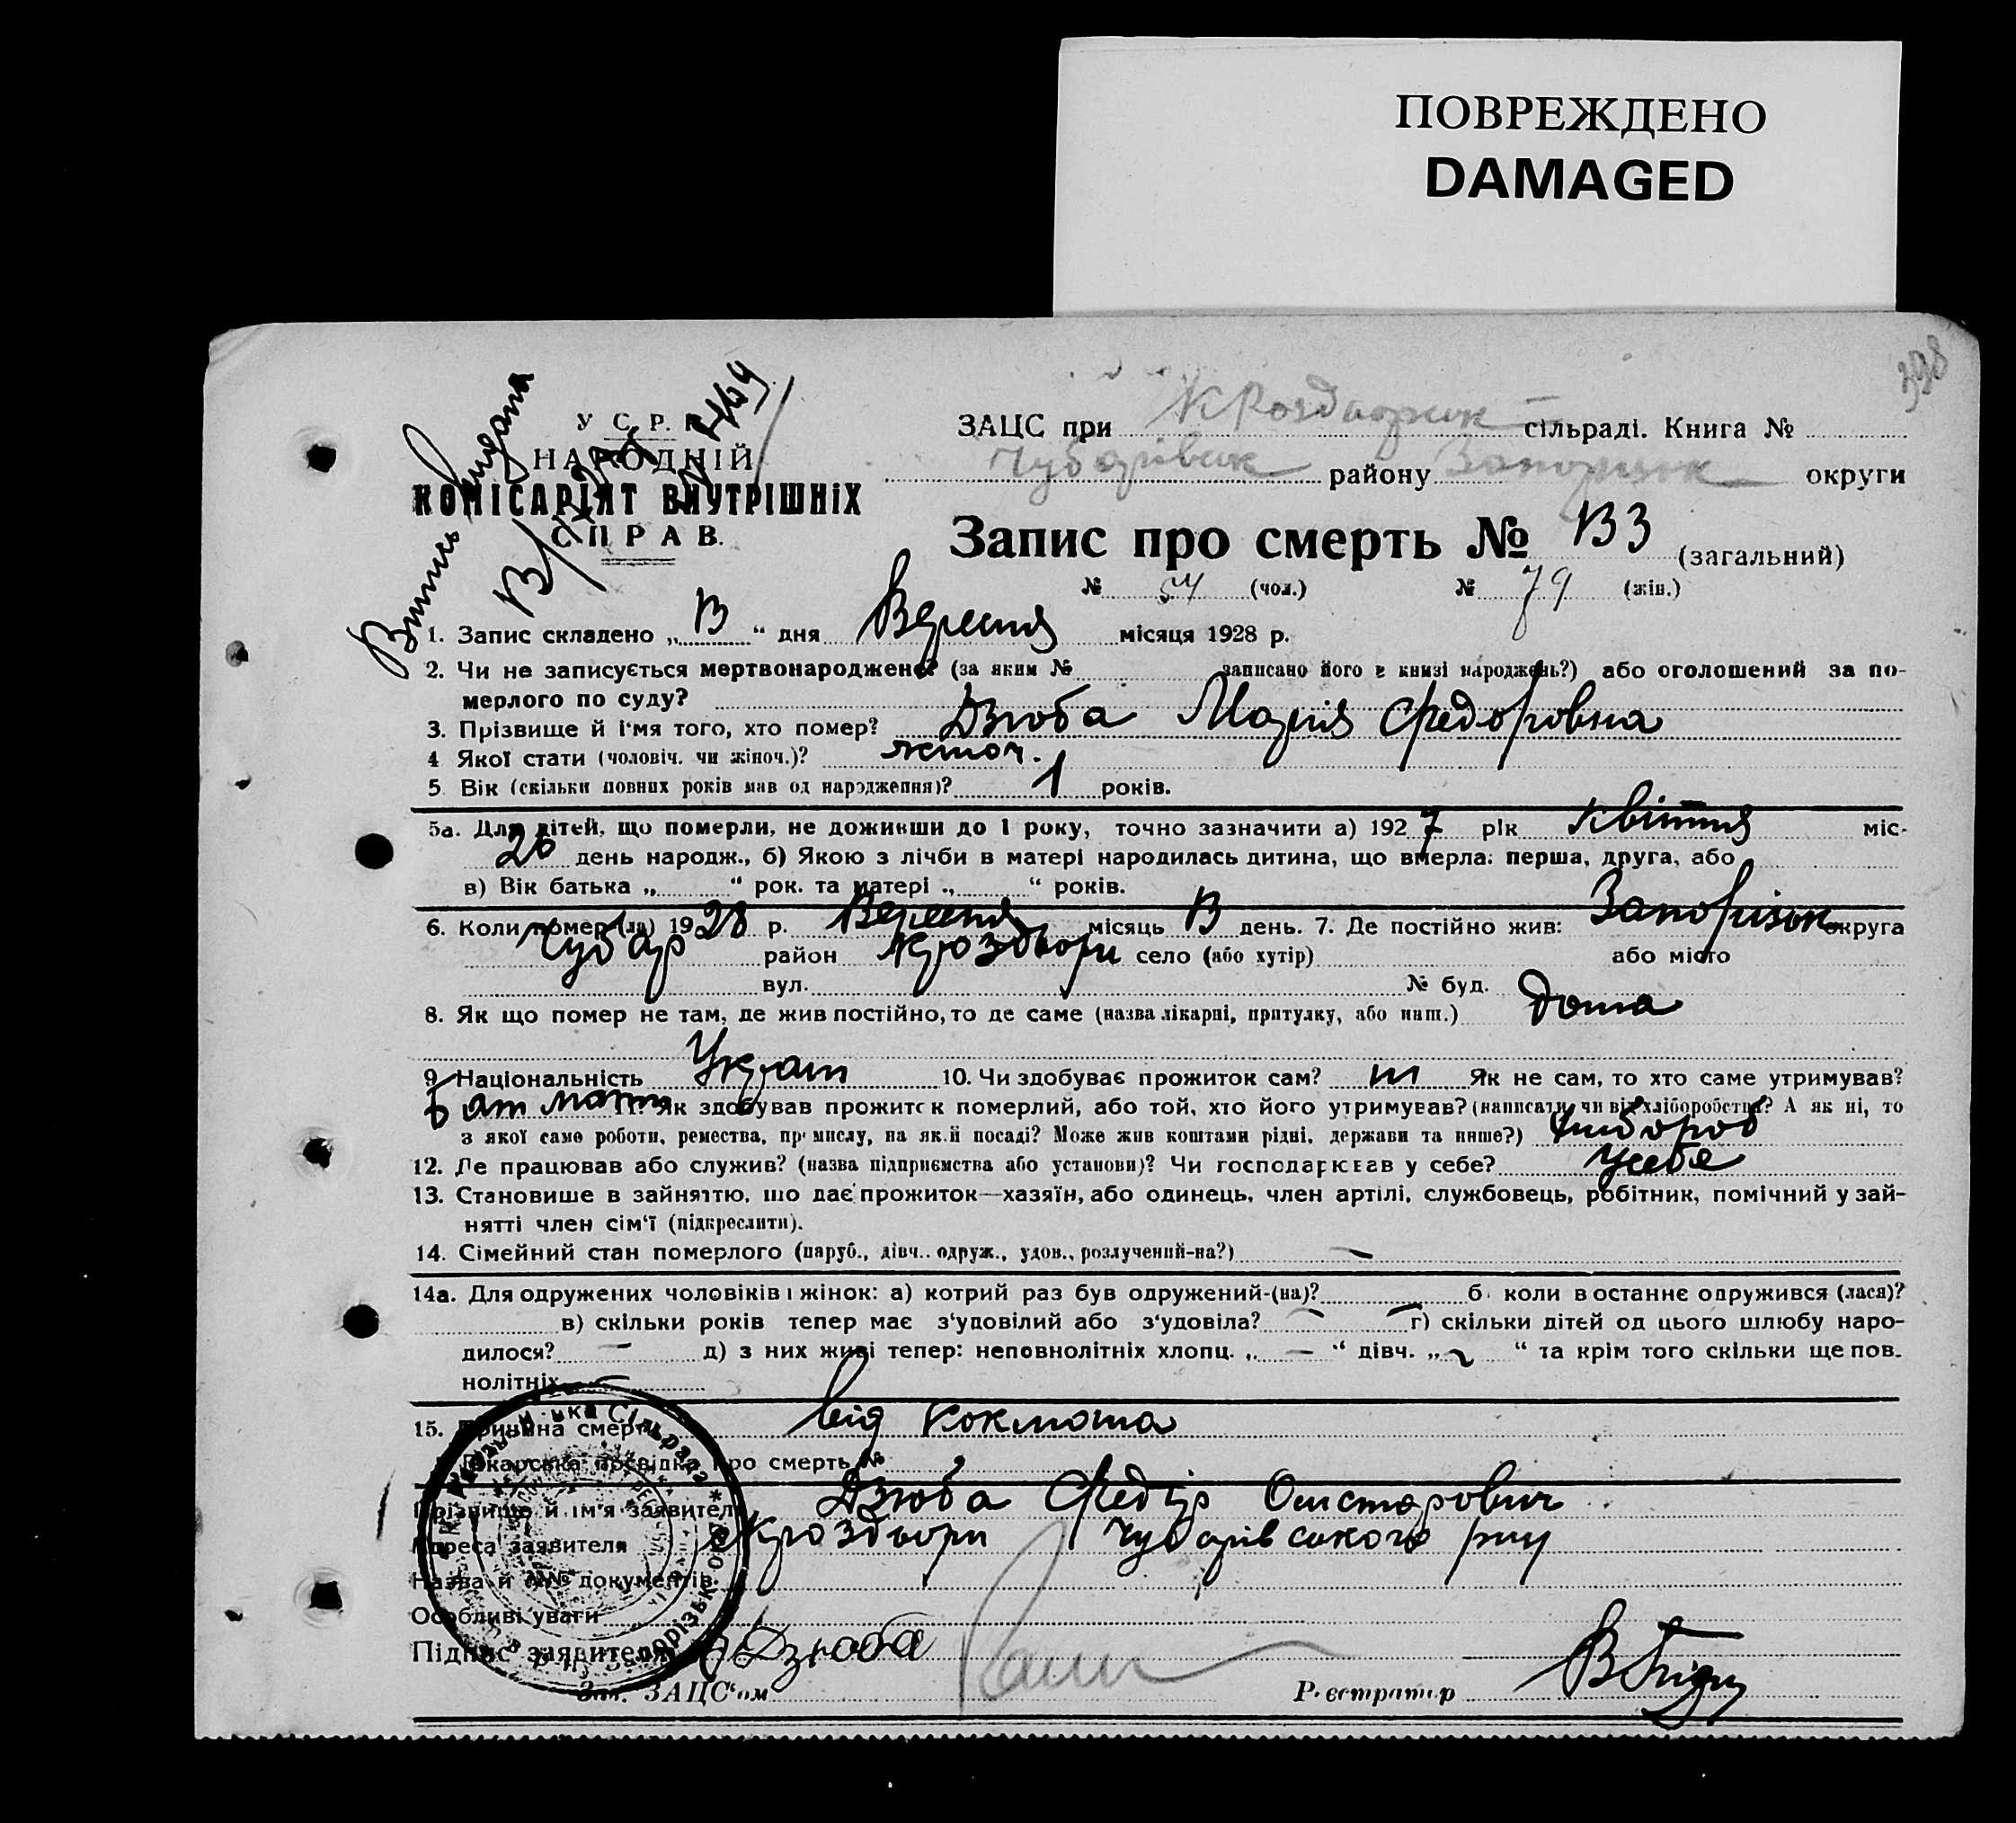 ПОВРЕЖДЕНО
DAMAGED
398
У. С. Р. Р.
НАРОДНІЙ
КОМІСАРІЯТ ВНУТРІШНІХ
СПРАВ.
Випись видана
ЗАЦС при сільраді. Книга №
Чубарівськ району Запорізьк округи
Запис про смерть № 133 (загальний)
№ 54 (чол.) № 79 (жін.)
1. Запис складено „13“ дня Вересня місяця 1928 р.
2. Чи не записується мертвонароджене? (за яким № записано його в книзі народжень?) або оголошений за по-
мерлого по суду?
3. Прізвище й і'мя того, хто помер? Дзюба Марія Федоровна
4 Якої стати (чоловіч. чи жіноч.)? жіноч.
5. Вік (скільки повних років мав од народження)? 1 років.
5а. Для дітей, що померли, не доживши до 1 року, точно зазначити а) 1927 рік квітня міс.
26 день народж., б) Якою з лічби в матері народилась дитина, що вмерла: перша, друга, або
в) Вік батька „ “ рок. та матері „ “ років.
6. Коли помер (ла) 1928 р. Вересня місяць 13 день. 7. Де постійно жив: Запорізьк округа
Чубар район Кроздори село (або хутір) або місто
вул. № буд.
8. Як що помер не там, де жив постійно, то де саме (назва лікарні, притулку, або инш.) дома
9. Національність Украт 10. Чи здобуває прожиток сам? ні Як не сам, то хто саме утримував?
бат мати 11. Як здобував прожиток померлий, або той, хто його утримував? (написати, чи від хліборобства? А як ні, то
з якої саме роботи, ремества, промислу, на якій посаді? Може жив коштами рідні, держави та инше?) хлібороб
12. Де працював або служив? (назва підприємства або установи)? Чи господарював у себе? усебе
13. Становище в зайняттю, що дає прожиток—хазяїн, або одинець, член артілі, службовець, робітник, помічний у зай-
нятті член сім'ї (підкреслити).
14. Сімейний стан померлого (паруб., дівч., одруж., удов., розлучений-на?) —
14а. Для одружених чоловіків і жінок: а) котрий раз був одружений-(на)? б) коли востаннє одружився (лася)?
в) скільки років тепер має з'уповілий або з'удовіла? — г) скільки дітей од цього шлюбу наро-
дилося? — д) з них живі тепер: неповнолітніх хлопц. „ — “ дівч. „ “ та крім того скільки ще пов.
нолітніх —
15. Причина смерти від коклюша
Лікарська посвідка про смерть №
Прізвище й ім'я заявителя Дзюба Федір
Адреса заявителя Кроздори Чубарівського рну
Назва й №№ документів
Особливі уваги
Підпис заявителя Дзюба
Зав. ЗАЦС'ом
Реєстратор